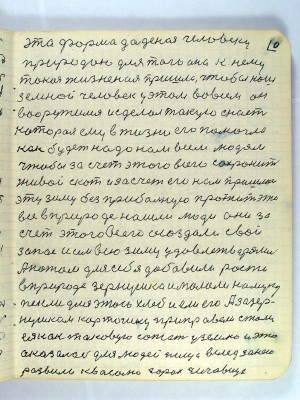 10
эта форма даденая человеку
природою для того она к нему
такая жизненая пришла, чтобы наш
земной человек у этом во всем он
вооружился и сделал такую снасть
которая ему в жизни его помогла
как будет надо нам всем людям
чтобы за счет этого всего сохранить
живой скот и за счет его нам пришлось
эту зиму без прибыльную прожить это
все в природе нашли люди они за
счет этого всего создали свой
запас и им всю зиму удовлетворяли
А потом для себя добавили рость
в природе зернушка и мололи на муку
пекли для этого хлеб и ели его А зазер-
нушком картошку приправляли стали
ея как таковую сажать у землю и это
оказалось для людей пища вслед за нею
развили квасолю горох чичавицу